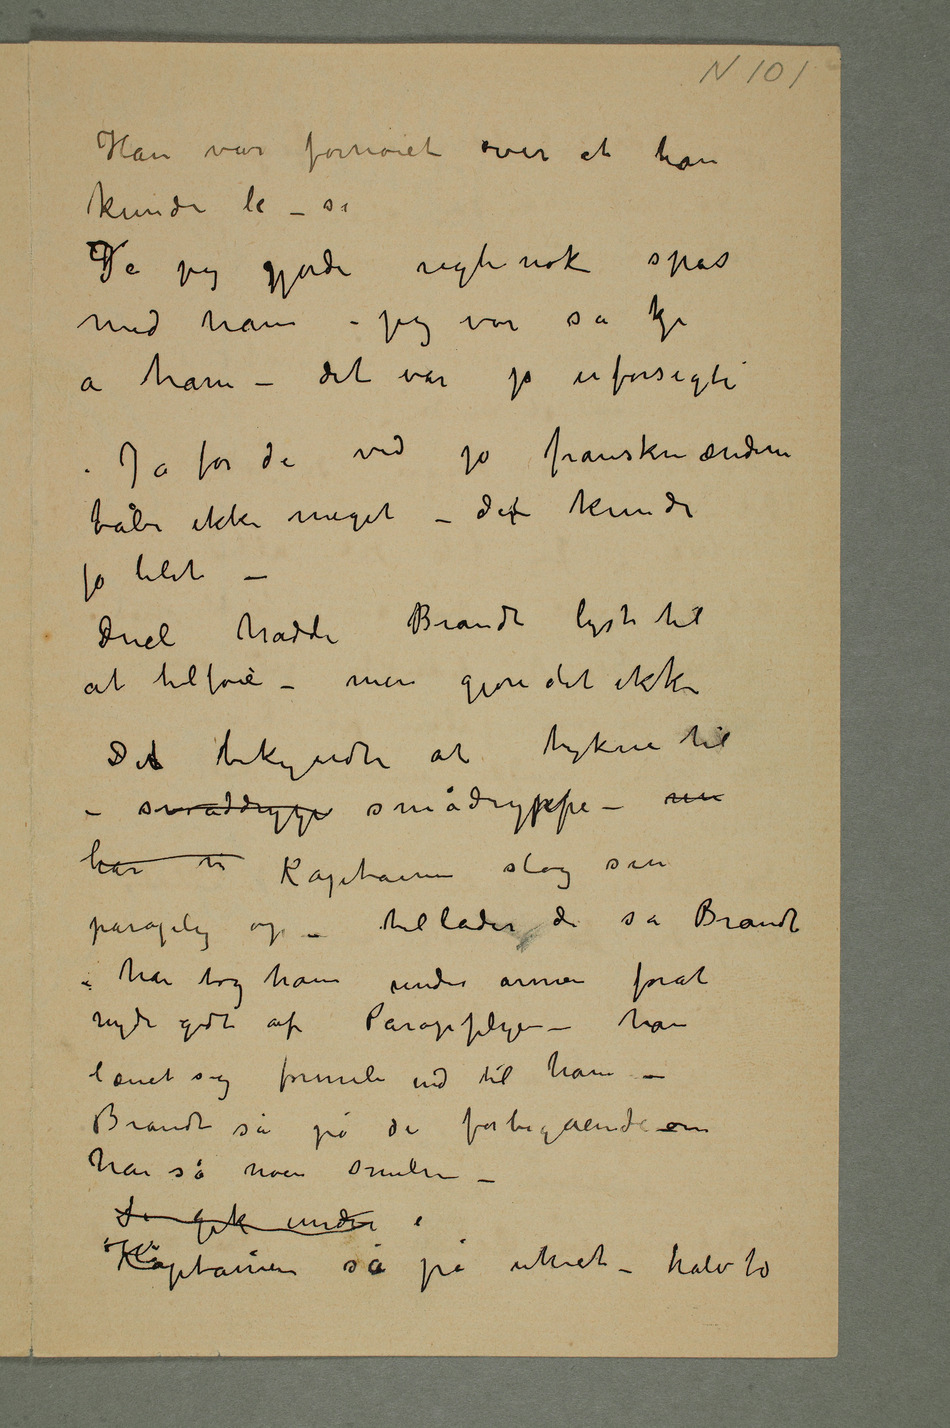 N 101
Han var fornøiet over at han
kunde le – se
Ja jeg gjorde rigtinok spas
med ham – jeg var sa kje
a ham – det var jo uforsigti
. Ja for de ved jo franskmændene
tåler ikke meget – det kunde
jo blit –
Duel hadde Brandt lyst til
at tilføie – men gjore det ikke
Det bekyndte at tykne til
– småddryppe smådryppe – nu
har vi Kaptainen slog sin
paraply op – tillader de sa Brandt
– han tog ham under armen forat
nyde godt af Parapplyen – han
lænet sig formelig ind til ham –
Brandt så på de forbigående om
han så noen smilen –
De gik under i
Kaptainen så på uhret – halv to